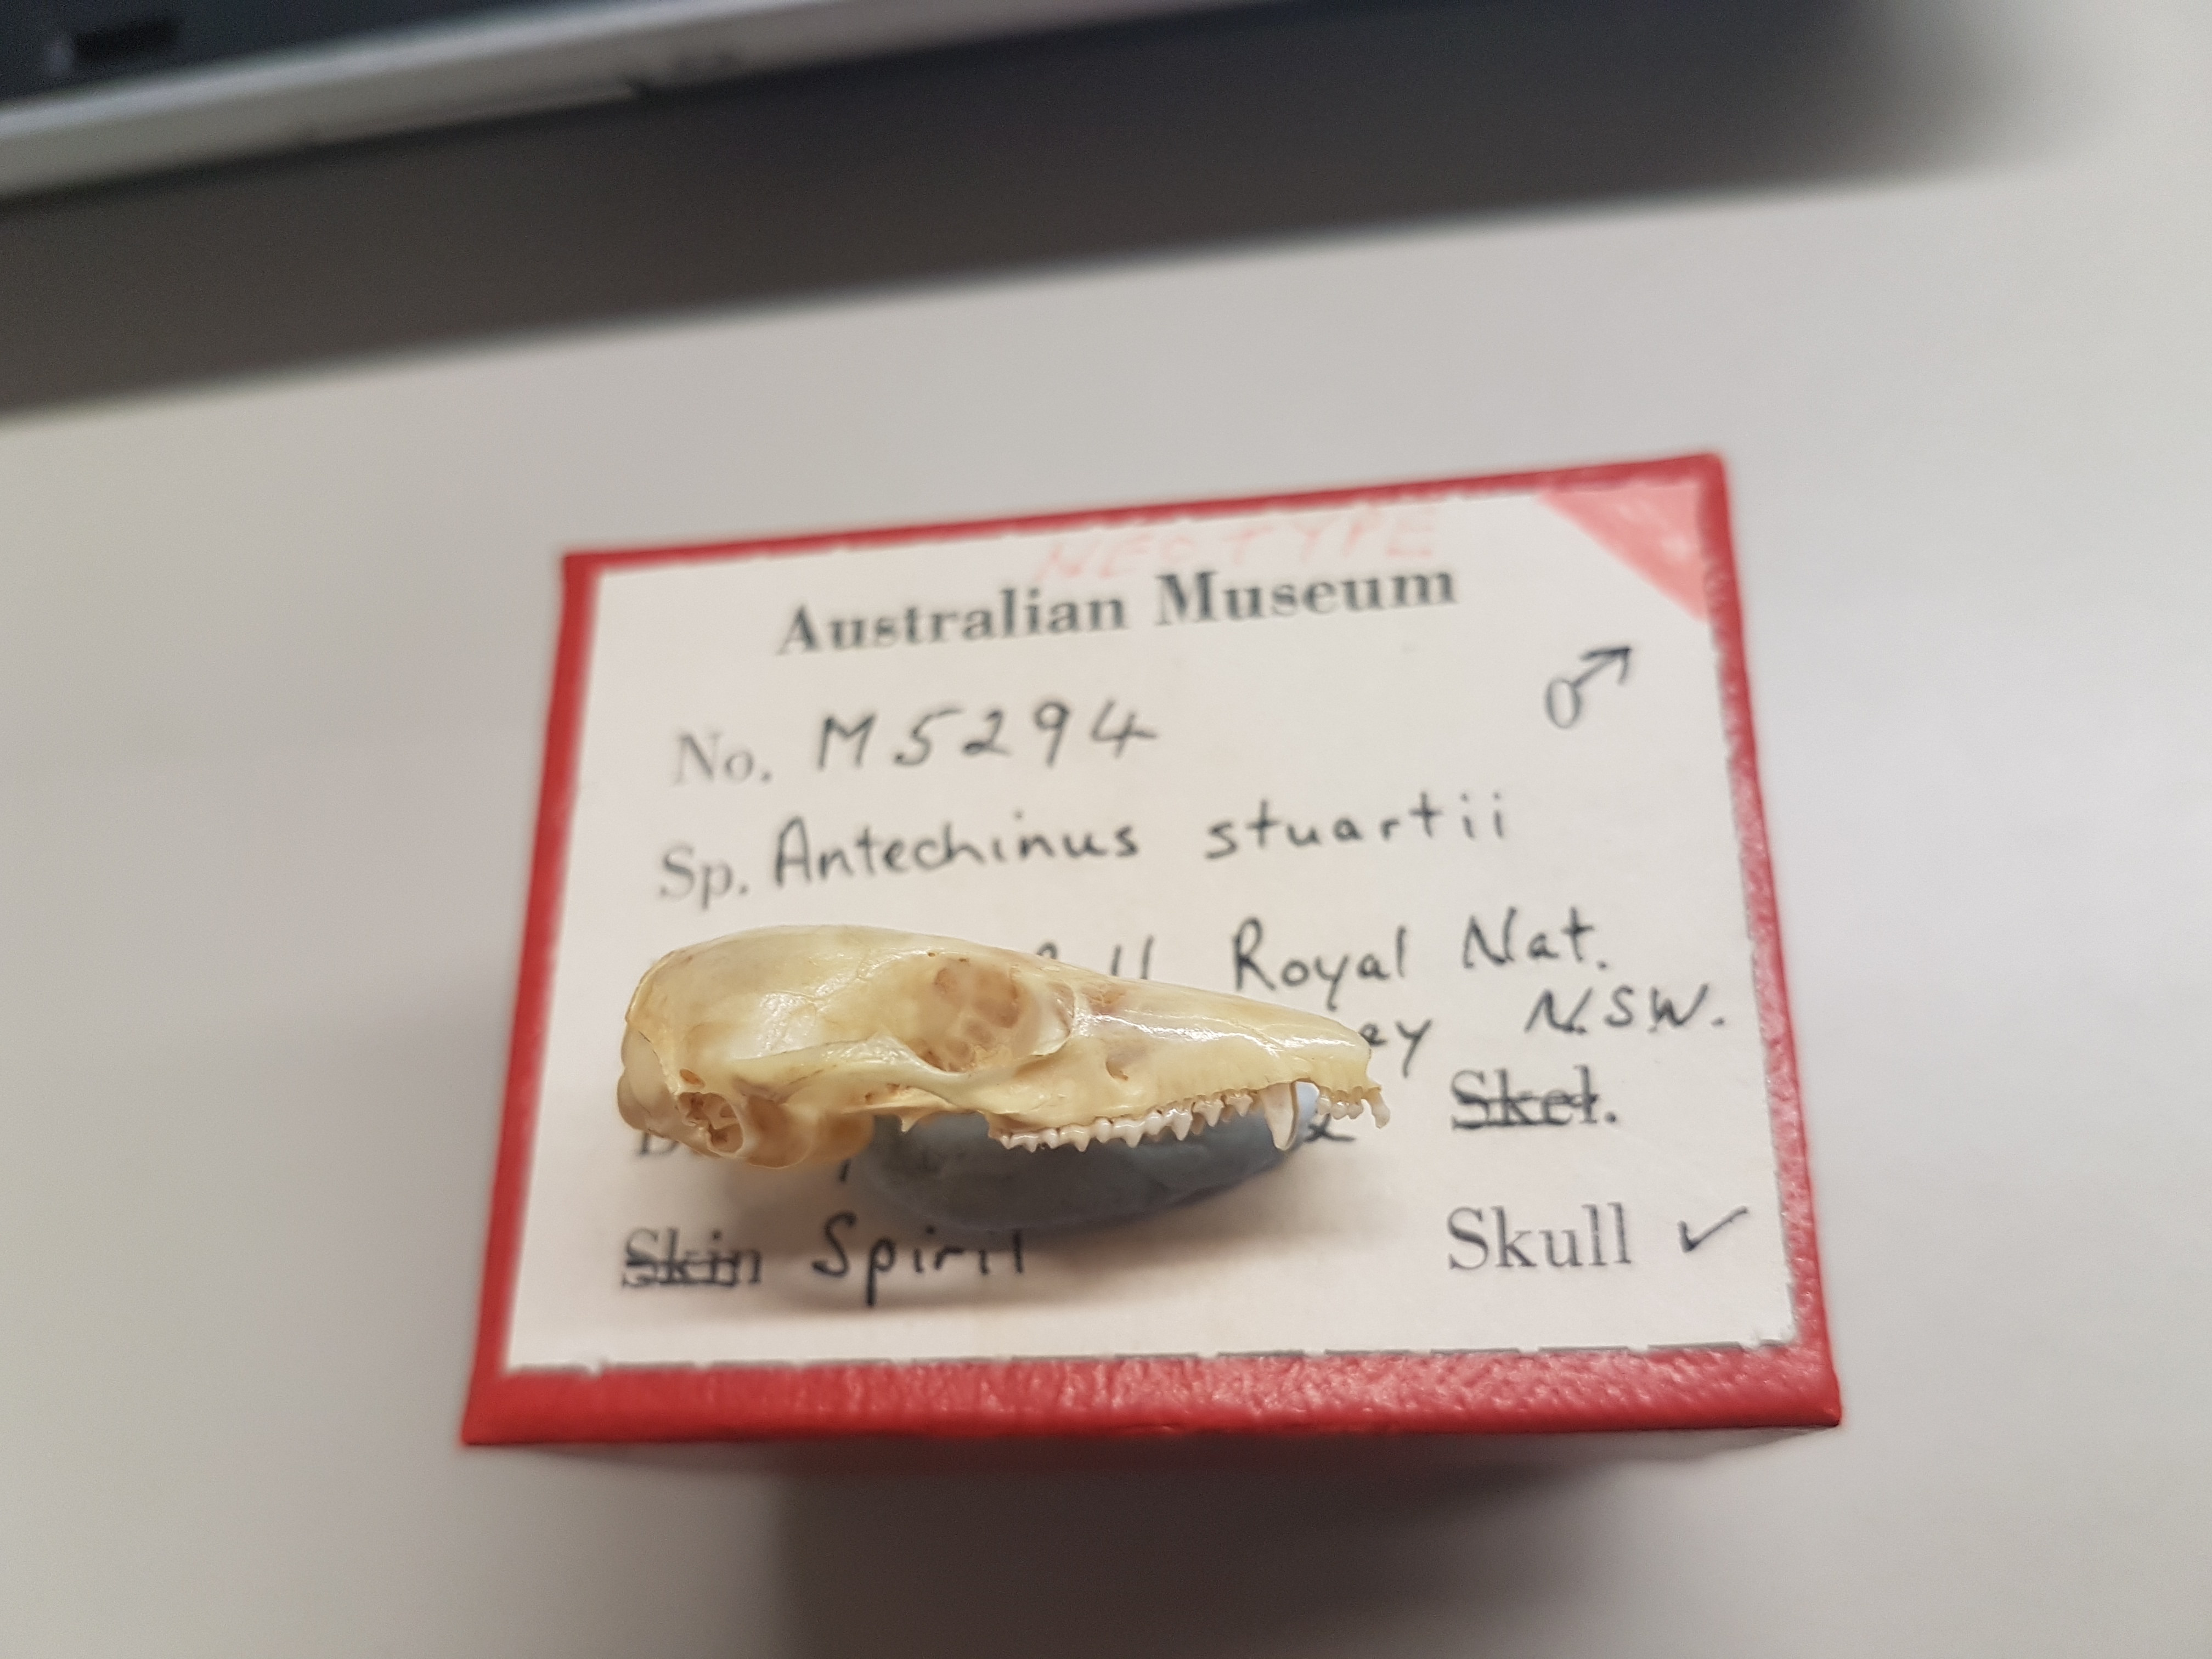 NEOTYPE
Australian Museum
♂
No. M5294
Sp. Antechinus stuartii
Royal Nat.
NSW.
Skel.
Skin Spirit Skull ✓